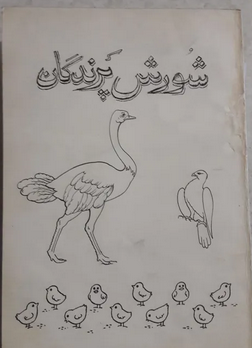 شورش پرندگان